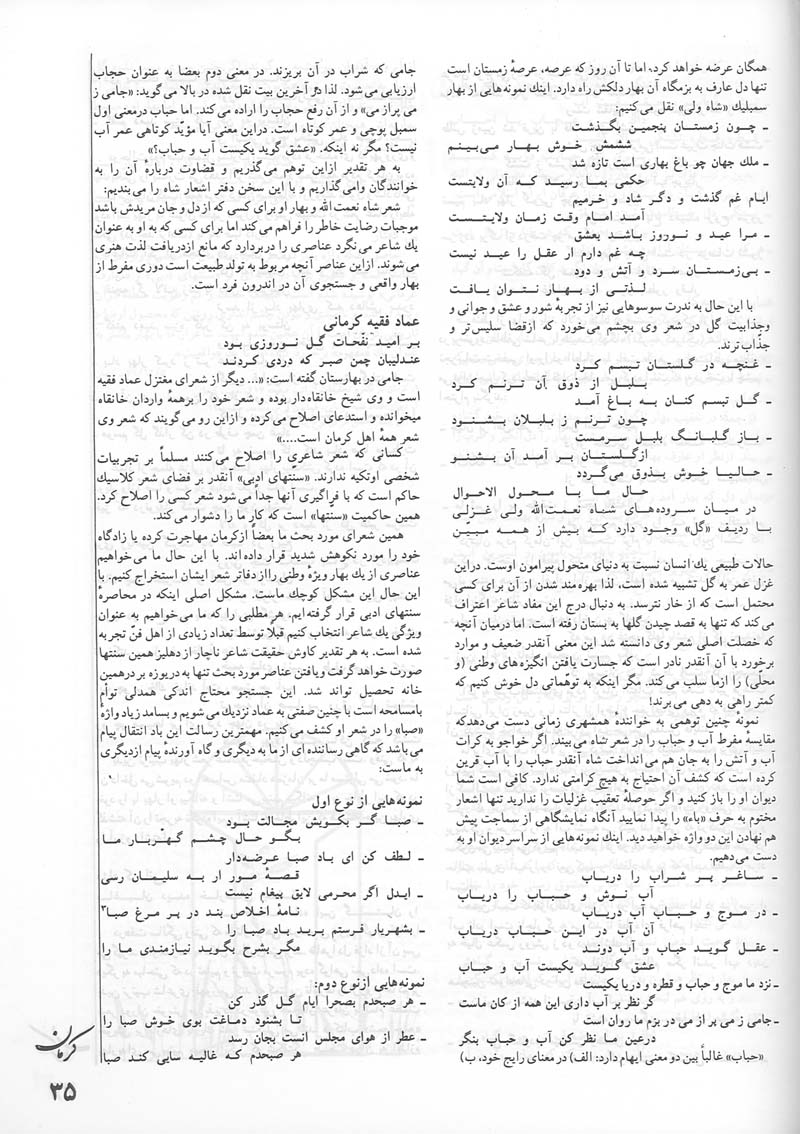 همگان عرضه خواهد کرد. اما تا آن روز که عرصه، عرصهٔ زمستان است
تنها دل عارف به بزمگاه آن بهار دلکش راه دارد. اینك نمونه‌هایی از بهار
سمبلیك «شاه ولی» نقل می‌کنیم:
ـ چون زمستان پنجمین بگذشت
ششمش خوش بهار می‌بینم
ـ ملك جهان چو باغ بهاری است تازه شد
حکمی بما رسید که آن ولایتست
ایام غم گذشت و دگر شاد و خرمیم
آمد امام وقت زمان ولایتست
ـ مرا عید و نوروز باشد بعشق
چه غم دارم ار عقل را عید نیست
ـ بی‌زمستان سرد و آتش و دود
لذتی از بهار نتوان یافت
با این حال به ندرت سوسوهایی نیز از تجربهٔ شور و عشق و جوانی و
وجذابیت گل در شعر وی بچشم می‌خورد که ازقضا سلیس‌تر و
جذّاب‌ترند.
ـ غنچه در گلستان تبسم کرد
بلبل از ذوق آن ترنم کرد
ـ گل تبسم کنان به باغ آمد
چون ترنم ز بلبلان بشنود
ـ باز گلبانگ بلبل سرمست
ازگلستان بر آمد آن بشنو
ـ حالیا خوش بذوق می‌گردد
حال ما با محول الاحوال
در میان سروده‌های شاه نعمت‌الله ولی غزلی
با ردیف «گل» وجود دارد که بیش از همه مبیّن
حالات طبیعی یك انسان نسبت به دنیای متحول پیرامون اوست. دراین
غزل عمر به گل تشبیه شده است، لذا بهره‌مند شدن از آن برای کسی
محتمل است که از خار نترسد. به دنبال درج این مفاد شاعر اعتراف
می‌کند که تنها به قصد چیدن گلها به بستان رفته است. اما درمیان آنچه
که خصلت اصلی شعر وی دانسته شد این معنی آنقدر ضعیف و موارد
برخورد با آن آنقدر نادر است که جسارت یافتن انگیزه‌های وطنی (و
محلّی) را ازما سلب می‌کند. مگر اینکه به توهّماتی دل خوش کنیم که
کمتر راهی به دهی می‌برند!
نمونهٔ چنین توهمی به خوانندهٔ همشهری زمانی دست می‌دهدکه
مقایسهٔ مفرط آب و حباب را در شعر شاه می‌بیند. اگر خواجو به کرات
آب و آتش را به جان هم می‌انداخت شاه آنقدر حباب را با آب قرین
کرده است که کشف آن احتیاج به هیچ کرامتی ندارد. کافی است شما
دیوان او را باز کنید و اگر حوصلهٔ تعقیب غزلیات را ندارید تنها اشعار
مختوم به حرف «باء» را پیدا نمایید آنگاه نمایشگاهی از سماجت پیش
هم نهادن این دو واژه خواهید دید. اینك نمونه‌هایی از سراسر دیوان او به
دست می‌دهیم.
ـ ساغر پر شراب را دریاب
آب نوش و حباب را دریاب
ـ در موج و حباب آب دریاب
آن آب در این حباب دریاب
ـ عقل گوید حباب و آب دوند
عشق گوید یکیست آب و حباب
ـ نزد ما موج و حباب و قطره و دریا یکیست
گر نظر بر آب داری این همه از کان ماست
ـ جامی ز می پر از می در بزم ما روان است
درعین ما نظر کن آب و حباب بنگر
«حباب» غالباً بین دو معنی ایهام دارد: الف) در معنای رایج خود، ب)
جامی که شراب در آن بریزند. در معنی دوم بعضا به عنوان حجاب
ارزیابی می‌شود. لذا در آخرین بیت نقل شده در بالا می‌گوید: «جامی ز
می پراز می» و از آن رفع حجاب را اراده می‌کند. اما حباب درمعنی اول
سمبل پوچی و عمر کوتاه است. دراین معنی آیا مؤید کوتاهی عمر آب
نیست؟ مگر نه اینکه. «عشق گوید یکیست آب و حباب»؟
به هر تقدیر ازاین توهم می‌گذریم و قضاوت دربارهٔ آن را به
خوانندگان وامی‌گذاریم و با این سخن دفتر اشعار شاه را می‌بندیم:
شعر شاه نعمت‌الله و بهار او برای کسی که ازدل و جان مریدش باشد
موجبات رضایت خاطر را فراهم می‌کند اما برای کسی که به او به عنوان
یك شاعر می‌نگرد عناصری را دربردارد که مانع ازدریافت لذت هنری
می‌شوند. ازاین عناصر آنچه مربوط به تولد طبیعت است دوری مفرط از
بهار واقعی و جستجوی آن در اندرون فرد است.
عماد فقیه کرمانی
بر امید نفحات گل نوروزی بود
عندلیبان چمن صبر که دردی کردند
جامی در بهارستان گفته است: «... دیگر از شعرای مغتزل عماد فقیه
است و وی شیخ خانقاه‌دار بوده و شعر خود را برهمهٔ واردان خانقاه
میخوانده و استدعای اصلاح می‌کرده و ازاین رو می‌گویند که شعر وی
شعر همهٔ اهل کرمان است....»
کسانی که شعر شاعری را اصلاح می‌کنند مسلماً بر تجربیات
شخصی اوتکیه ندارند. «سنتهای ادبی» آنقدر بر فضای شعر کلاسیك
حاکم است که با فراگیری آنها جداً می‌شود شعر کسی را اصلاح کرد.
همین حاکمیت «سنّتها» است که کار ما را دشوار می‌کند.
همین شعرای مورد بحث ما بعضاً ازکرمان مهاجرت کرده یا زادگاه
خود را مورد نکوهش شدید قرار داده‌اند. با این حال ما می‌خواهیم
عناصری از یك بهار ویژهٔ وطنی رااز دفاتر شعر ایشان استخراج کنیم. با
این حال این مشکل کوچك ماست. مشکل اصلی اینکه در محاصرهٔ
سنتهای ادبی قرار گرفته‌ایم. هر مطلبی را که ما می‌خواهیم به عنوان
ویژگی یك شاعر انتخاب کنیم قبلاً توسط تعداد زیادی از اهل فنّ تجربه
شده است. به هر تقدیر کاوش حقیقت شاعر ناچار از دهلیز همین سنتها
صورت خواهد گرفت و یافتن عناصر مورد بحث تنها به دریوزه بر درهمین
خانه تحصیل تواند شد. این جستجو محتاج اندکی همدلی توأم
بامسامحه است با چنین صفتی به عماد نزدیك می‌شویم و بسامد زیاد واژهٔ
«صبا» را در شعر او کشف می‌کنیم. مهمترین رسالت این باد انتقال پیام
می‌باشد که گاهی رساننده‌ای از ما به دیگری و گاه آورندهٔ پیام ازدیگری
به ماست:
نمونه‌هایی از نوع اول
ـ صبا گر بکویش مجالت بود
بگو حال چشم گهربار ما
ـ لطف کن ای باد صبا عرضه‌دار
قصهٔ مور ار به سلیمان رسی
ـ ایدل اگر محرمی لایق پیغام نیست
نامهٔ اخلاص بند در پر مرغ صبا۳
ـ بشهریار فرستم برید باد صبا را
مگر بشرح بگوید نیازمندی ما را
نمونه‌هایی ازنوع دوم:
ـ هر صبحدم بصحرا ایام گل گذر کن
تا بشنود دماغت بوی خوش صبا را
ـ عطر از هوای مجلس انست بجان رسد
هر صبحدم که غالیه سایی کند صبا
کرمان
۳۵